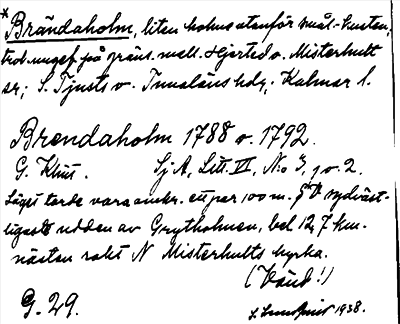 * Brändaholm, liten holme utanför smål.-kusten,
trol. ungef. på gräns. mell. Hjorted o. Misterhult
sr; S. Tjusts o. Tunaläns hdr, Kalmar l.
Brendaholm 1788 o. 1792.
G. Klint. Sj A, Litt. VI, No 3, 1 o. 2.
Läget torde vara omkr. ett par 100 m. sydväst-
ligaste udden av Grytholmen, bel 12,7 km.
nästan rakt N Misterhults kyrka.
(Vänd!)
G. 29. 1938.